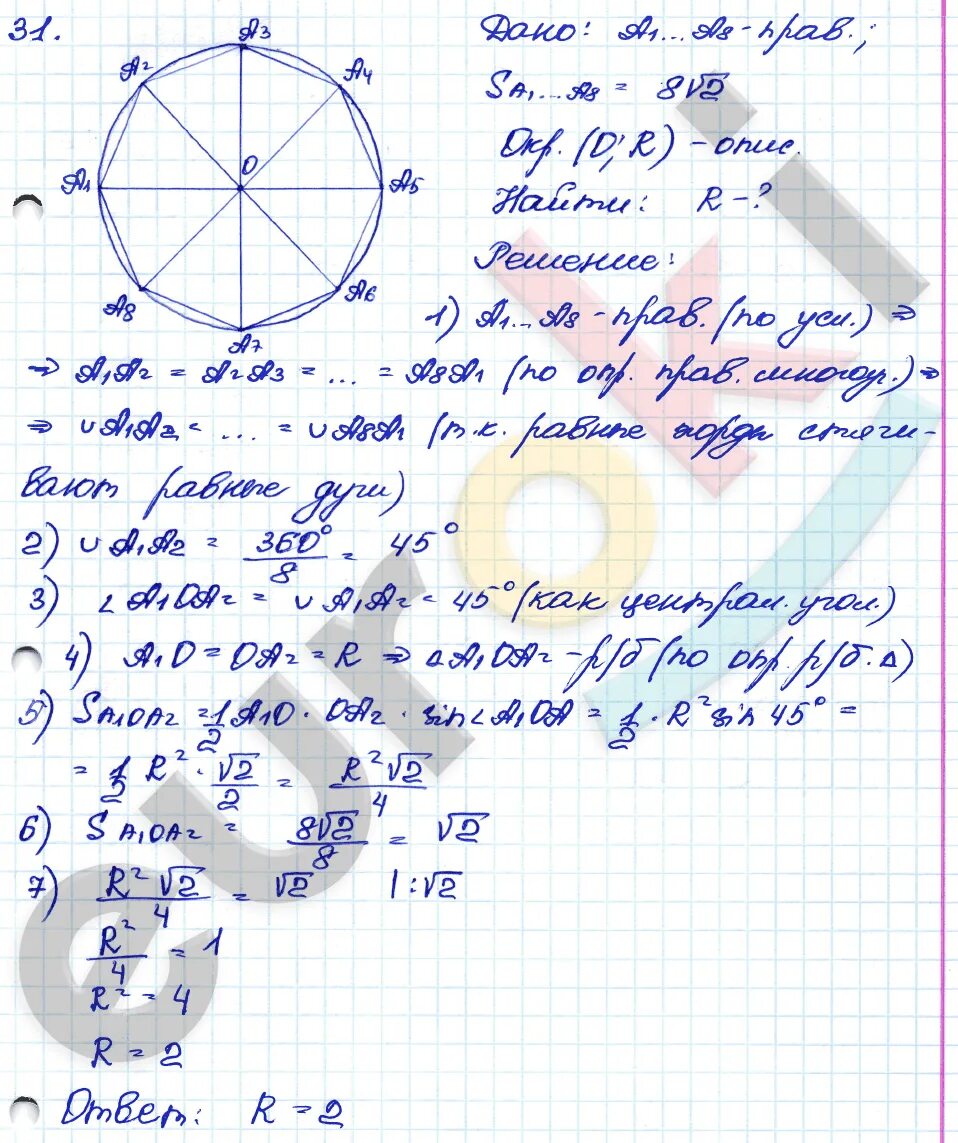 31.
A3
A2
A4
O
A1
A5
A8
A6
A7
Дано: A1...A8 - прав.;
SA1...A8 = 8√2
Окр. (O; R) - опис.
Найти: R - ?
Решение:
1) A1...A8 - прав. (по усл.) ⇒
⇒ A1A2 = A2A3 = ... = A8A1 (по опр. прав. многоуг.) ⇒
⇒ ∪A1A2 = ... = ∪A8A1 (т.к. равные хорды стяги-
вают равные дуги)
2) ∪A1A2 = 360°/8 = 45°
3) ∠A1OA2 = ∪A1A2 = 45° (как централ. угол.)
4) A1O = OA2 = R ⇒ △A1OA2 - р/б (по опр. р/б. △)
5) SA1OA2 = 1/2 A1O · OA2 · sin∠A1OA = 1/2 · R² sin 45° =
= 1/2 R² · √2/2 = R²√2/4
6) SA1OA2 = 8√2/8 = √2
7) R²√2/4 = √2 | : √2
R²/4 = 1
R² = 4
R = 2
Ответ: R = 2
euroki